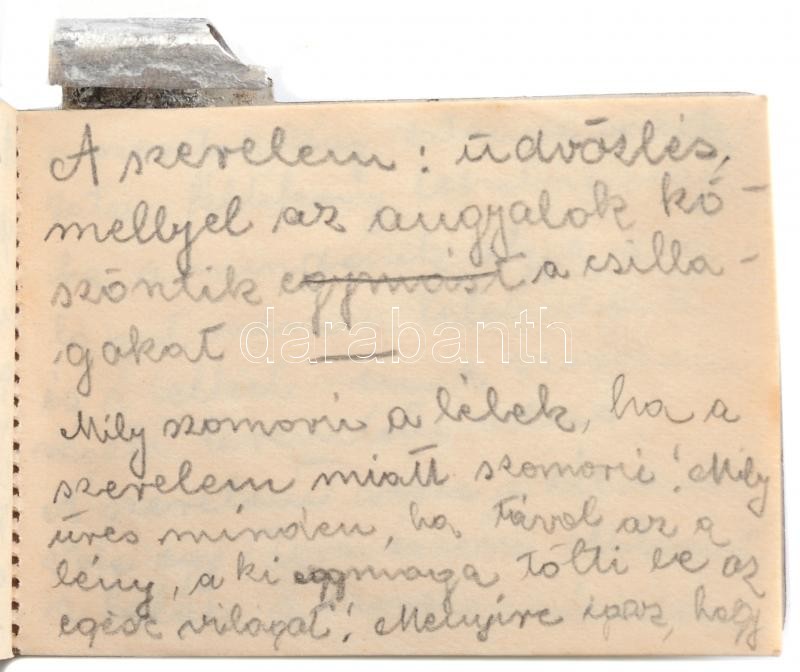 A szerelem: üdvözlés,
mellyel az angyalok kö-
szöntik egymást a csilla-
gokat
darabanth
Mily szomorú a lélek, ha a
szerelem miatt szomorú! Mily
üres minden, ha távol az a
lény, a ki egymaga tölti be az
egész világot! Mennyire igaz, hogy